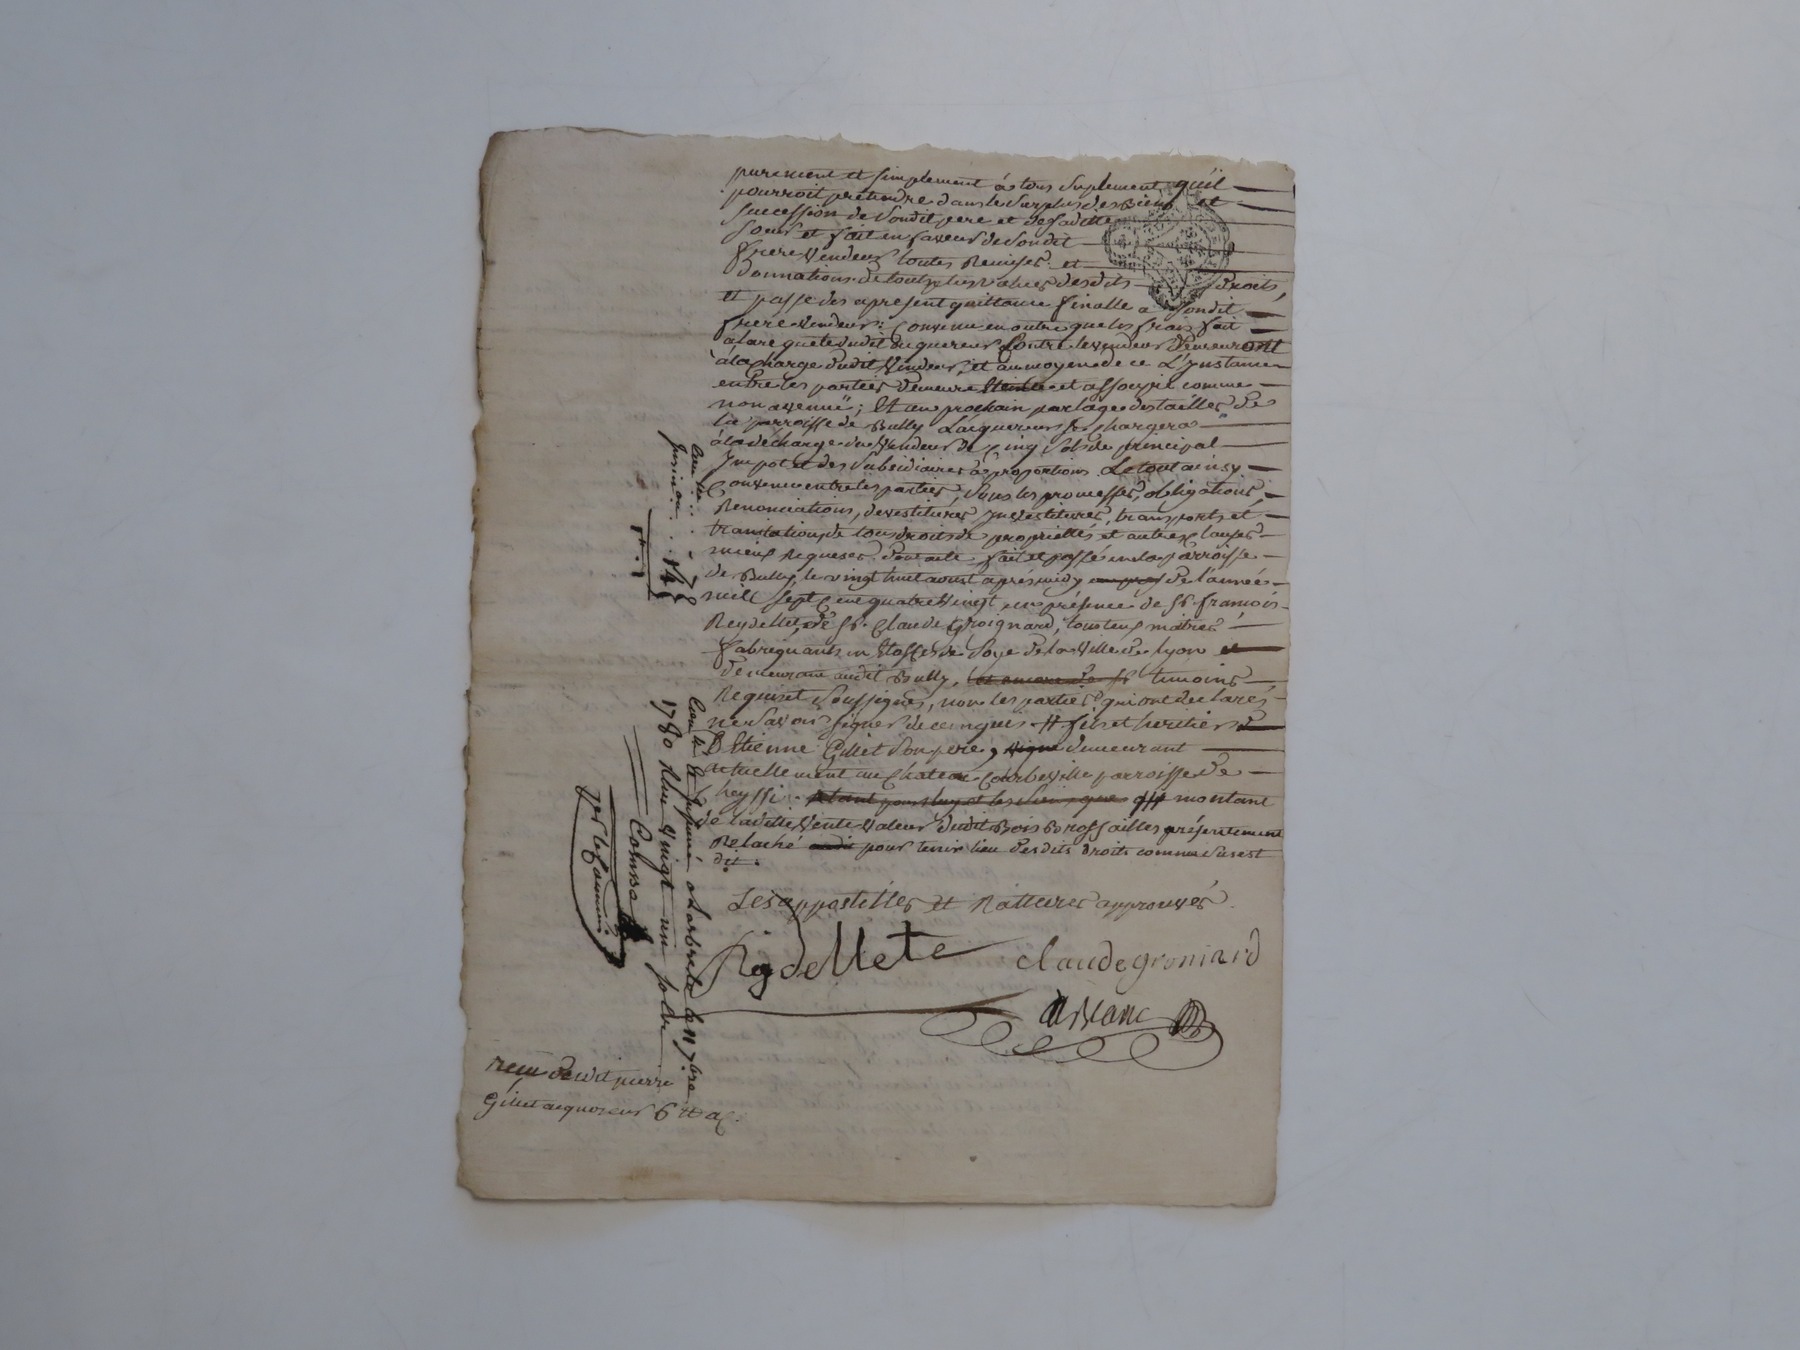 purement et simplement à tous Suplement qu'il
pourroit prétendre dans le Surplus des Biens et
Succession de Sondit pere et de Saditte
Soeur et fait en faveur de Sondit
frere Vendeur toutes Remises et
donnations de touttes plus values desdits droits,
et passe des apresent quittance finalle a Sondit
frere Vendeur; Convenu en outre que les frais fait
alarequete dudit acquereur Contre levendeur demeuront
àlacharge dudit Vendeur, et aumoyen de ce L'Instance
entre les parties demeure Eteinte et assoupie comme
non avenuë; Et au prochain partage des tailles de
la parroisse de Bully L'acquereur Se chargera
àladécharge du Vendeur de Cinq Sols de principal
Impot et des Subsidiaires à proportions Letout ainsy
Convenu entre les parties, Sous les promesses, obligations,
Renonciations, devestitures Investitures, transports et
translations de tous droits de propriettés et autres clauses
mieux Requises dont acte fait et passé en la parroisse
de Bully, le vingt huit aoust aprés midy de l'année
mill Sept Cent quatre Vingt, en présence de Sr. françois
Reydellet, et Sr. Claude Groignard, tous deux maitres
fabriquants en Etoffes de Soye de la Ville de Lyon et
demeurant audit Bully, temoins
Requis et Soussignés, non les parties qui ont declarés
ne Savoir signer de ce enquis # fils et heritier de
Etienne Gillet Son pere, demeurant
actuellement au Chateau Courbeville parroisse de
Chessy. #t montant
de laditte Vente Valeur dudit Bois Brossailles présentement
Relaché pour tenir lieu desdits droits comme dessus est
dit.
Les appostilles et Ratteures approuvés.
Reydellete claude groniard
Blanc
Cent.e
Insin.on
Con.lé & Insinué alarbresle le 11 7bre
1780 Reçu Vingt un sols
reçu dudit pierre
Gillet acquereur 6 #